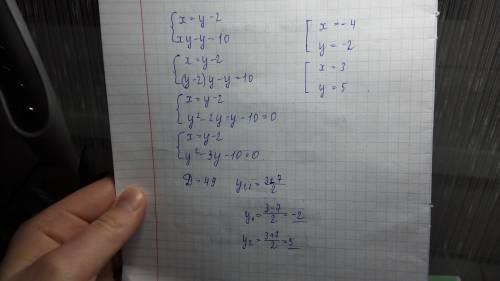 { x = y - 2
xy - y - 10
{ x = y - 2
(y - 2)y - y = 10
{ x = y - 2
y² - 2y - y - 10 = 0
{ x = y - 2
y² - 3y - 10 = 0
D = 49 y₁,₂ = (3±7)/2
y₁ = (3-7)/2 = -2
y₂ = (3+7)/2 = 5
[ x = -4
y = -2
[ x = 3
y = 5